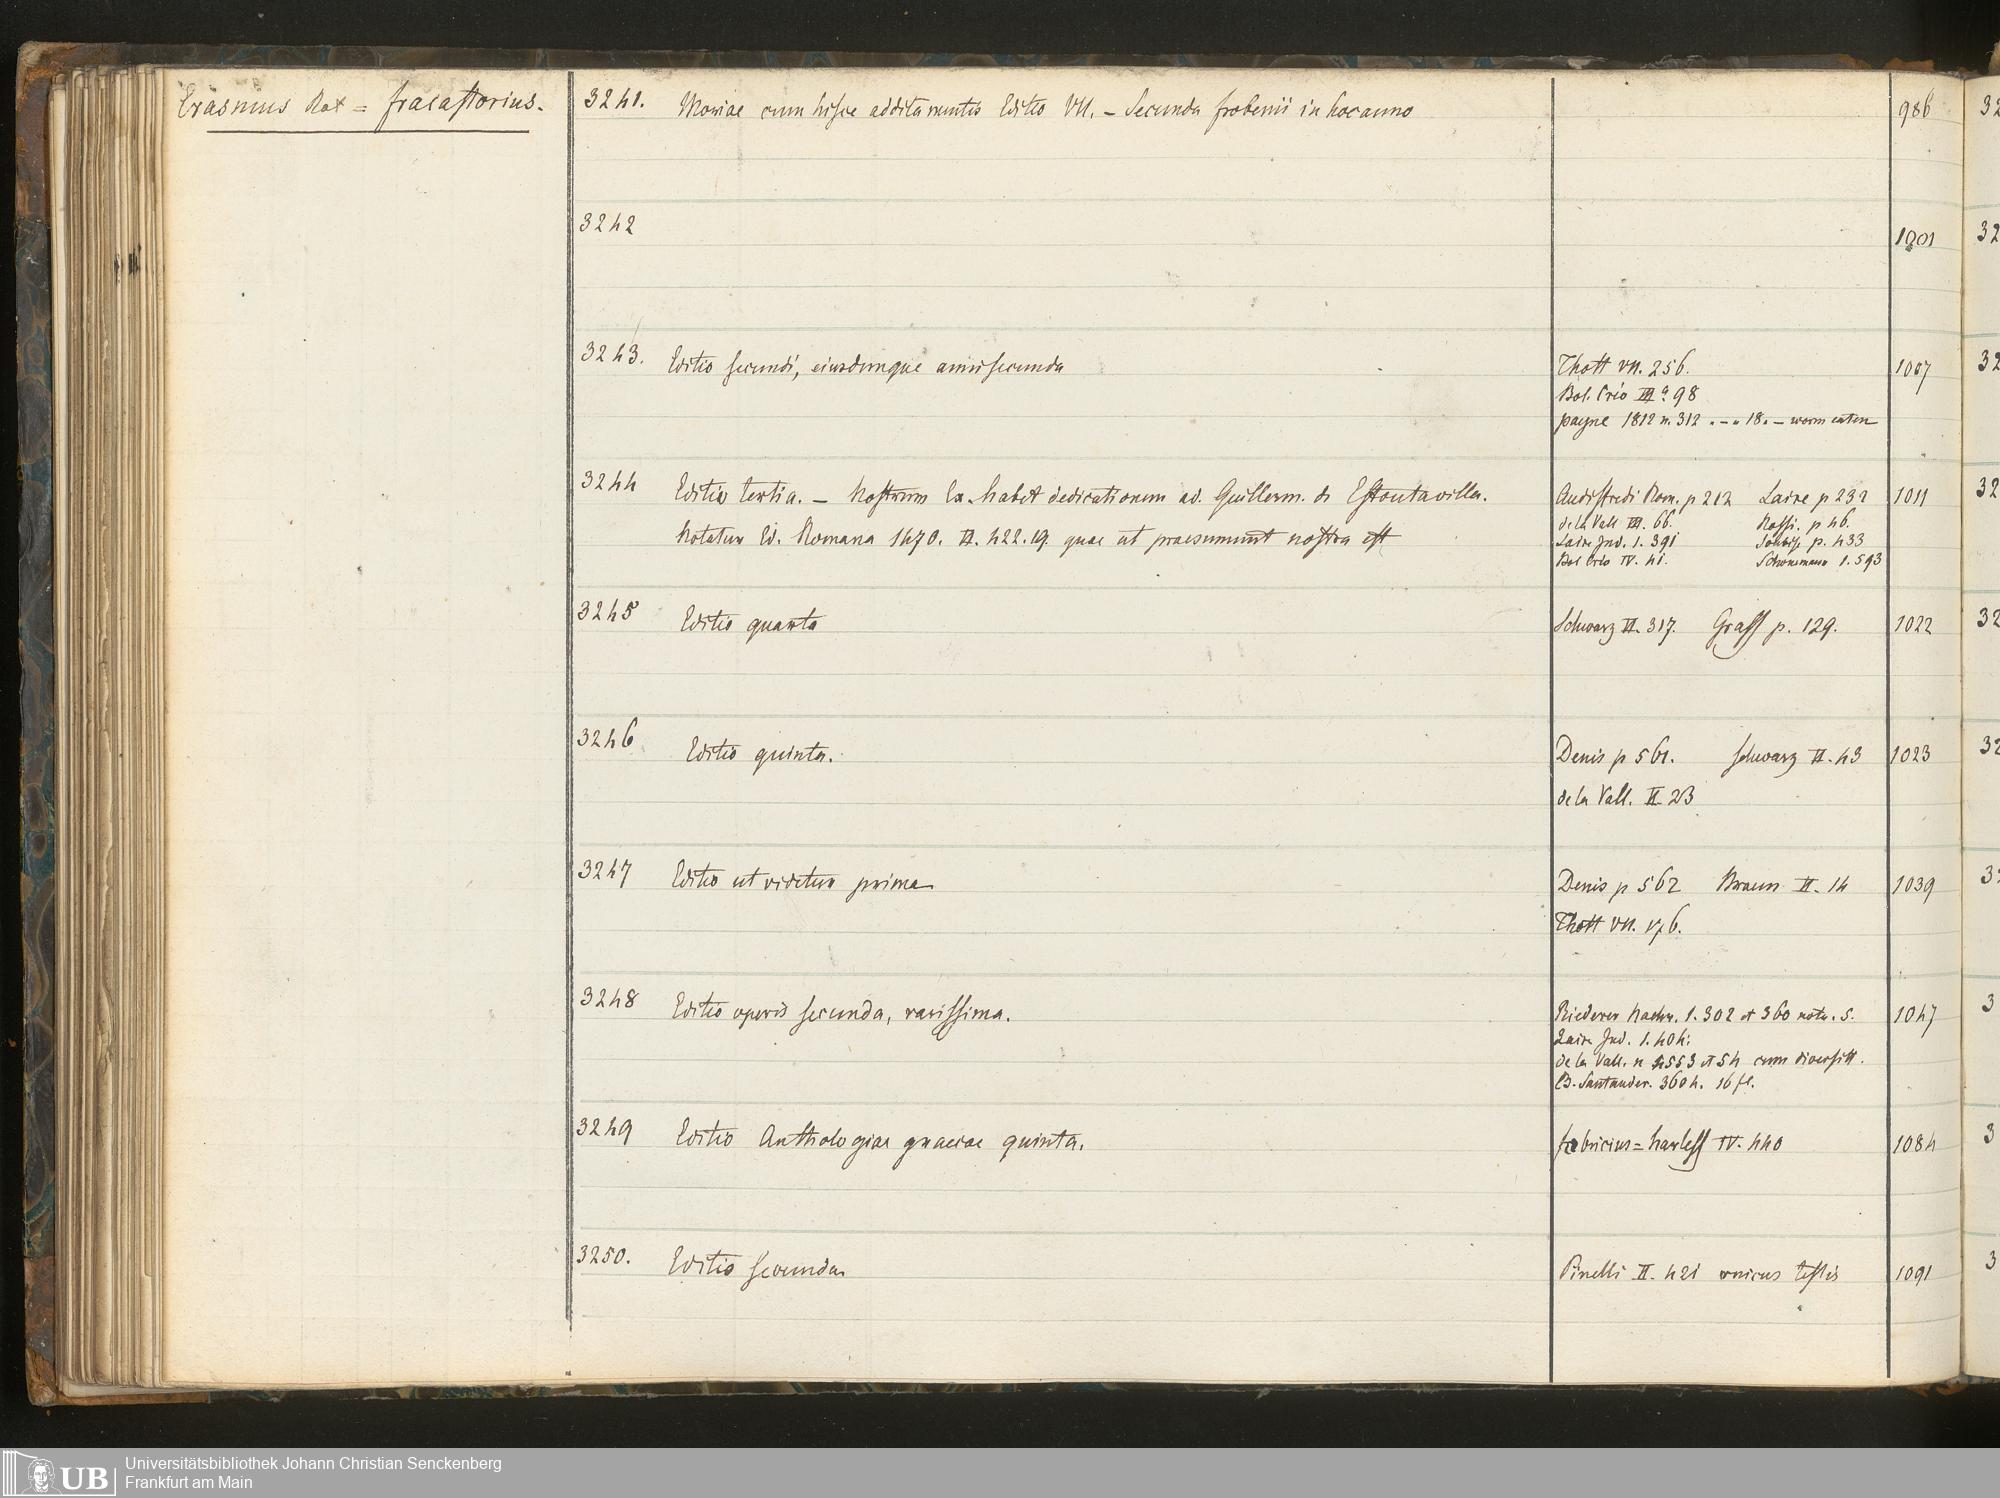 Erasmus Rot = Fracastorius.
3241. Moriae cum hisce additamentis Editio VII. – Secunda Frobenii in hoc anno 986
3242 1001
3243. Editio secundi, eiusdemque anni secunda Thott VII. 256. 1007
Bol. Crio III. 98
payne 1812 n. 312 . – . 18. – worm eaten
3244 Editio tertia. – Nostrum Ex. habet dedicationem ad. Guillerm. de Estoutavilla. Audiffredi Rom. p 212 Laire p 232 1011
de la Vall III. 66. Rossi. p 46.
Notatur Ed. Romana 1470. II. 422.19. quae ut praesumunt nostra est Laire Ind. 1. 391 Soubise p. 433
Bol Crio IV. 41. Schönemann 1. 593
3245 Editio quarta Schwarz II. 317. Grass p. 129. 1022
3246 Editio quinta. Denis p 561. Schwarz II. 43 1023
de la Vall. II. 23
3247 Editio ut videtur prima Denis p 562 Braun II. 14 1039
Thott VII. 176.
3248 Editio operis secunda, rarissima. Riederer Nachr. 1. 302 et 360 nota. 5. 1047
Laire Ind. 1. 404.
de la Vall. n 4553 et 54 cum diversitt.
B. Santander. 3604. 16 fl.
3249 Editio Anthologiae graecae quinta. Fabricius = Harless IV. 440 1084
3250. Editio secunda Pinelli II. 421 unicus testis 1091
32
32
32
32
32
32
3
3
3
UB
Universitätsbibliothek Johann Christian Senckenberg
Frankfurt am Main